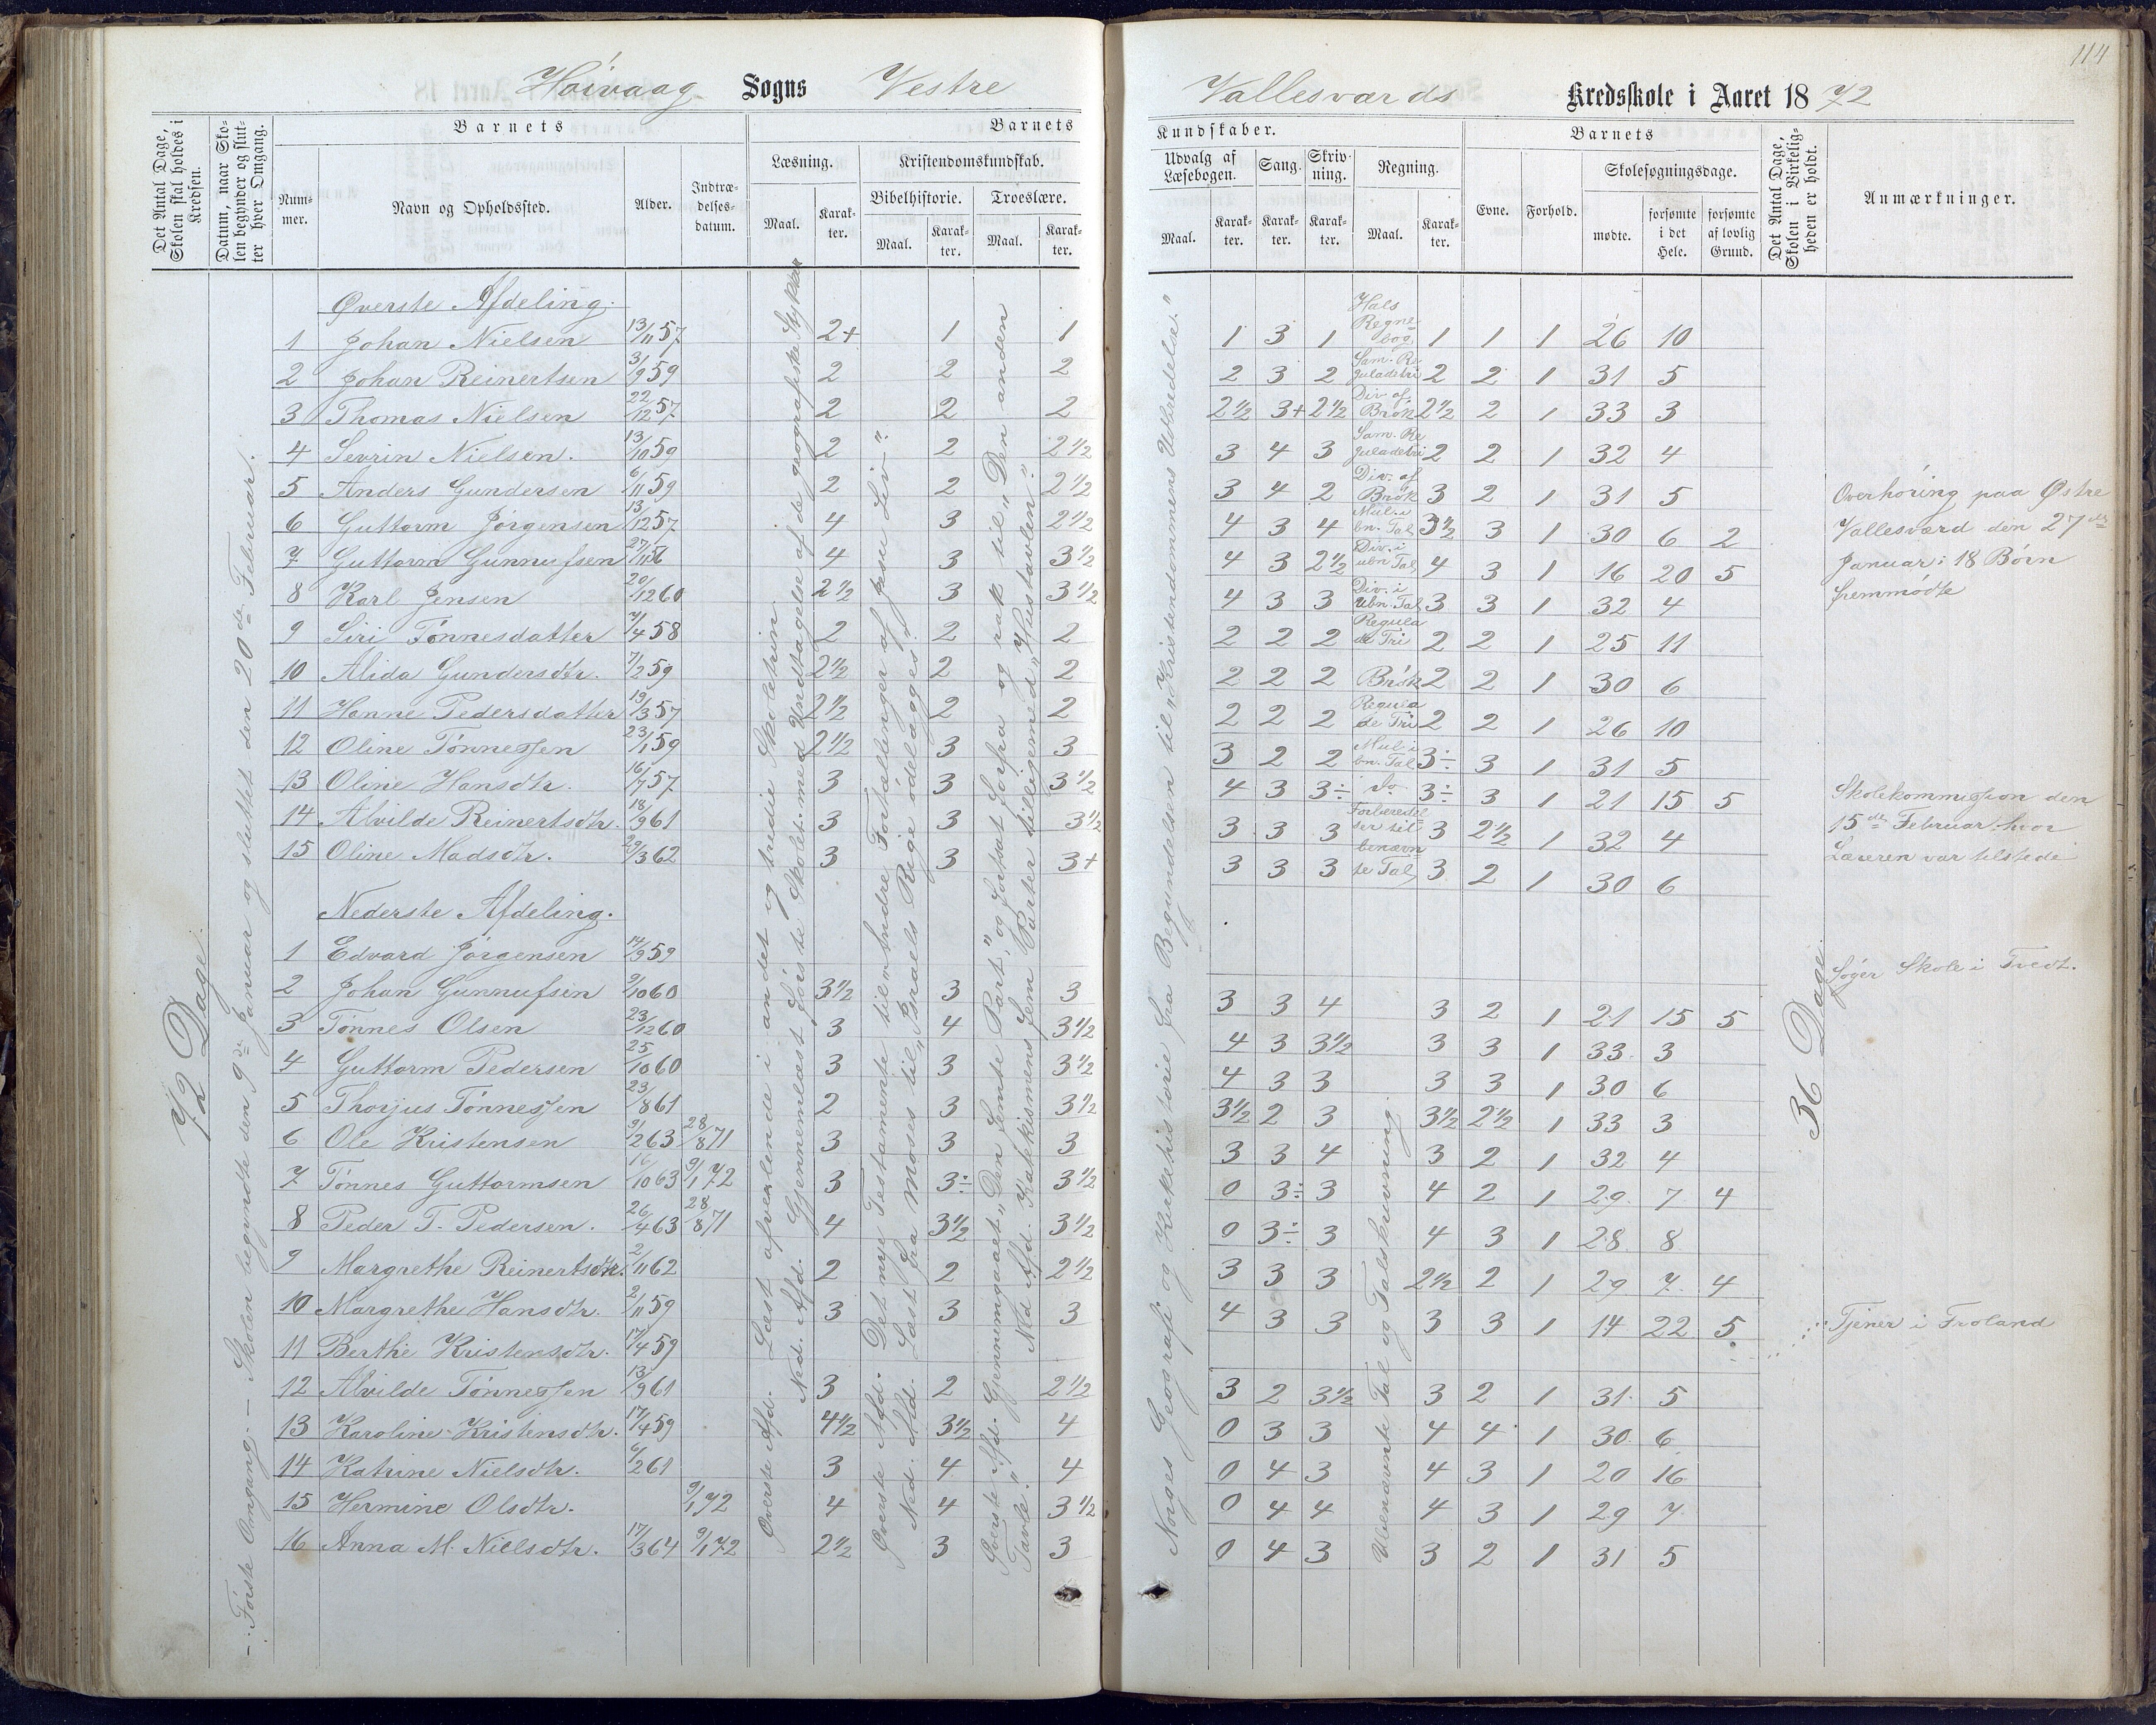 114
Høivaag Sogns Vestre Vallesværds Kredsskole i Aaret 1872
Det Antal Dage, Skolen skal holdes i Kredsen.
Datum, naar Skolen begynder og slutter hver Omgang.
Barnets
Nummer.
Navn og Opholdssted.
Alder.
Indtrædelsesdatum.
Barnets
Læsning.
Maal.
Karakter.
Kristendomskundskab.
Bibelhistorie.
Maal.
Karakter.
Troeslære.
Maal.
Karakter.
Kundskaber.
Udvalg af Læsebogen.
Maal.
Karakter.
Sang.
Karakter.
Skrivning.
Karakter.
Regning.
Maal.
Karakter.
Barnets
Evne.
Forhold.
Skolesøgningsdage.
mødte.
forsømte i det Hele.
forsømte af lovlig Grund.
Det Antal Dage, Skolen i Virkeligheden er holdt.
Anmærkninger.
72 Dage.
- Første Omgang. - Skolen begyndte den 9de Januar og sluttet den 20de Februar.
Øverste Afd. Læst afvexlende i andet og tredie Skoletrin.
Ned. Afd. Gjennemlæst første Skolet. med Undtagelse af de geografiske Stykker
Øverste Afd. Det nye Testamente til "Andre Fortællinger af Jesu Liv".
Ned. Afd. Læst fra Moses til "Israels Rige ødelægges".
Øverste Afd. Gjennemgaaet "Den femte Part", og fortsat forfra og rak til "Den anden Tavle."
Ned Afd. Katekismenens fem Parter tilligemed "Hustavlen".
Norges Geografi og Kirkehistorie fra Begyndelsen til "Kristendommens Udbredelse."
Øverste Afdeling.
1 Johan Nielsen 13/11 57 2+ 1 1 1 3 1 Hals Regnebog. 1 1 1 26 10
2 Johan Reinertsen 3/9 59 2 2 2 2 3 2 Sam. Reguladetri 2 2 1 31 5
3 Thomas Nielsen 22/12 57 2 2 2 2½ 3+ 2½ Div. af Brøk 2½ 2 1 33 3
4 Sevrin Nielsen. 13/10 59 2 2 2½ 3 4 3 Sam. Reguladetri 2 2 1 32 4
5 Anders Gundersen 6/11 59 2 2 2½ 3 4 2 Div. af Brøk 3 2 1 31 5
6 Guttorm Jørgensen 13/12 57 4 3 2½ 4 3 4 Mul. i bn. Tal 3½ 3 1 30 6 2
7 Guttorm Gunnufsen 27/11 56 4 3 3½ 4 3 2½ Div. i ubn Tal 4 3 1 16 20 5
8 Karl Jensen 20/12 60 2½ 3 3½ 4 3 3 Div. i Ubn. Tal 3 3 1 32 4
9 Siri Tønnesdatter 7/4 58 2 2 2 2 2 2 Regula de Tri 2 2 1 25 11
10 Alida Gundersdtr. 7/2 59 2½ 2 2 2 2 2 Brøk 2 2 1 30 6
11 Hanne Pedersdatter 19/3 57 2½ 2 2 2 2 2 Regula de Tri 2 2 1 26 10
12 Oline Tønnessen 23/1 59 2½ 3 3 3 2 2 Mul i bn. Tal 3÷ 3 1 31 5
13 Oline Hansdtr. 16/7 57 3 3 3½ 4 3 3÷ do. 3÷ 3 1 21 15 5
14 Alvilde Reinertsdtr. 18/9 61 3 3 3½ 3 3 3 Forberedelser til 3 2½ 1 32 4
15 Oline Madsdtr. 29/3 62 3 3 3+ 3 3 3 benævnte Tal 3 2 1 30 6
Overhøring paa Østre
Vallesværd den 27de
Januar: 18 Børn
fremmødte
Skolekommission den
15de Februar, hvor
Læreren var tilstede
Nederste Afdeling.
1 Edvard Jørgensen 14/9 59 Søger Skole i Tvedt.
2 Johan Gunnufsen 9/10 60 3½ 3 3 3 3 4 3 2 1 21 15 5
3 Tønnes Olsen 23/12 60 3 4 3½ 4 3 3½ 3 3 1 33 3
4 Guttorm Pedersen 25/10 60 3 3 3½ 4 3 3 3 3 1 30 6
5 Thorjus Tønnessen 23/8 61 2 3 3½ 3½ 2 3 3½ 2½ 1 33 3
6 Ole Kristensen 9/2 63 28/8 71 3 3 3 3 3 4 3 2 1 32 4
7 Tønnes Guttormsen 16/10 63 9/1 72 3 3÷ 3½ 0 3÷ 3 4 2 1 29 7 4
8 Peder T. Pedersen. 26/4 63 28/8 71 4 3½ 3½ 0 3÷ 3 4 3 1 28 8
9 Margrethe Reinertsdtr. 2/11 62 2 2 2½ 3 3 3 2½ 2 1 29 7 4
10 Margrethe Hansdtr. 2/11 59 3 3 3 4 3 3 3 3 1 14 22 5
11 Berthe Kristensdtr. 17/4 59 Tjener i Froland
12 Alvilde Tønnessen 13/9 61 3 2 2½ 3 2 3½ 3 2 1 31 5
13 Karoline Kristensdtr. 17/4 59 4½ 3½ 4 0 3 3 4 4 1 30 6
14 Katrine Nielsdtr. 6/2 61 3 4 4 0 4 3 4 3 1 20 16
15 Hermine Olsdtr. 9/1 72 4 4 3½ 0 4 4 4 3 1 29 7
16 Anna M. Nielsdtr. 17/3 64 9/1 72 2½ 3 3 0 4 3 3 2 1 31 5
Ubenævnte Tal og Talskrivning.
36 Dage.